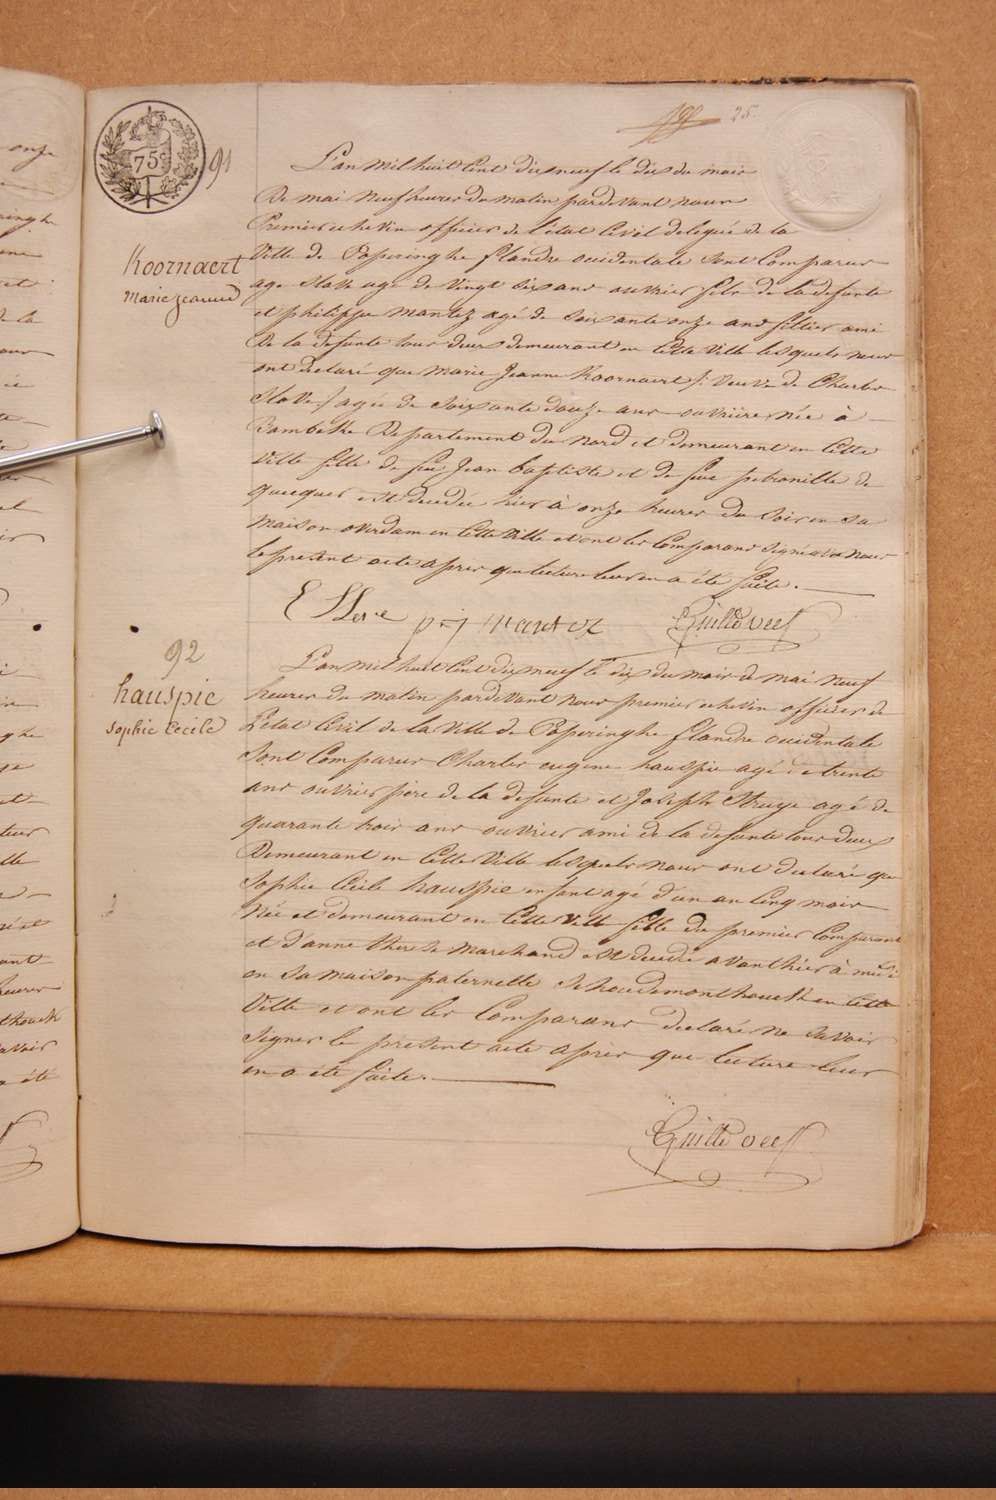 25
75
91
Koornaert
Marie Jeanne
L'an mil huit Cent dix neuf le dix du mois
De mai neuf heures du matin pardevant nous
Premier echevin officier de l'état Civil delegué de la
Ville de Poperinghe flandre occidentale sont Comparus
age de vingt six ans ouvrier fils de la defunte
et philippe mantez agé de soixante onze ans sillier ami
De la defunte tous deux demeurant en Cette Ville lesquels nous
ont declaré que marie Jeanne Koornaert /: Veuve de Charles
Slove :/ agée de soixante douze ans ouvrière née à
Bambeke Departement du nord et demeurant en Cette
Ville fille de feu Jean baptiste et de feue petronille de
quecquer est decedée hier à onze heures du soir en sa
maison overdam en Cette Ville et ont les Comparans signé avec nous
le present acte apres que lecture leur en a été faite.
E Slove p j mantez Guillebeel
92
hauspie
sophie Cecile
L'an mil huit Cent dix neuf le dix du mois de mai neuf
heures du matin pardevant nous premier echevin officier de
L'etat Civil de la Ville de Poperinghe flandre occidentale
Sont Comparus Charles eugene hauspie agé de trente
ans ouvrier père de la defunte et Joseph Struye agé de
quarante trois ans ouvrier ami de la defunte tous deux
Demeurant en Cette Ville lesquels nous ont declaré que
Sophie Cecile hauspie enfant agé d'un an Cinq mois
Née et demeurant en Cette Ville fille du premier Comparant
et d'anne therese marchand est decedée avant hier à midi
en sa maison paternelle Schoudemonthouck en Cette
Ville et ont les Comparans declaré ne savoir
Signer le present acte après que lecture leur
en a été faite.
Guillebeel